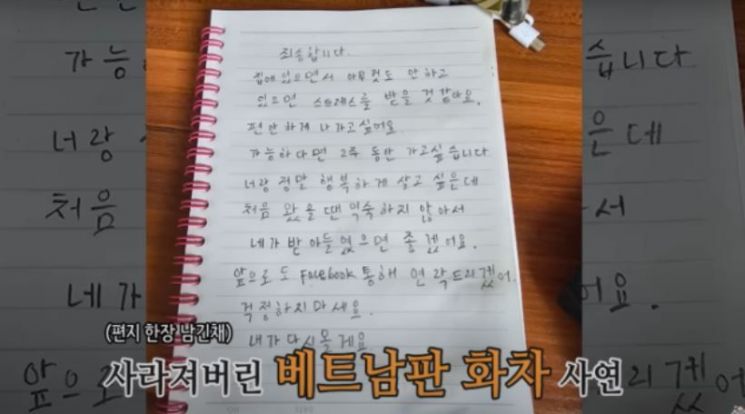 죄송합니다.
집에 있으면서 아무 것도 안 하고
있으면 스트레스를 받을 것 같아요.
편안하게 나가고 싶어요
가능하다면 2주 동안 가고 싶습니다
너랑 정말 행복하게 살고 싶은데
처음 왔을 땐 익숙하지 않아서
네가 받아들였으면 좋겠어요.
앞으로도 Facebook 통해 연락드리겠어.
걱정하지 마세요.
내가 다시 올게요
(편지 한장 남긴채)
사라져버린 베트남판 화차 사연